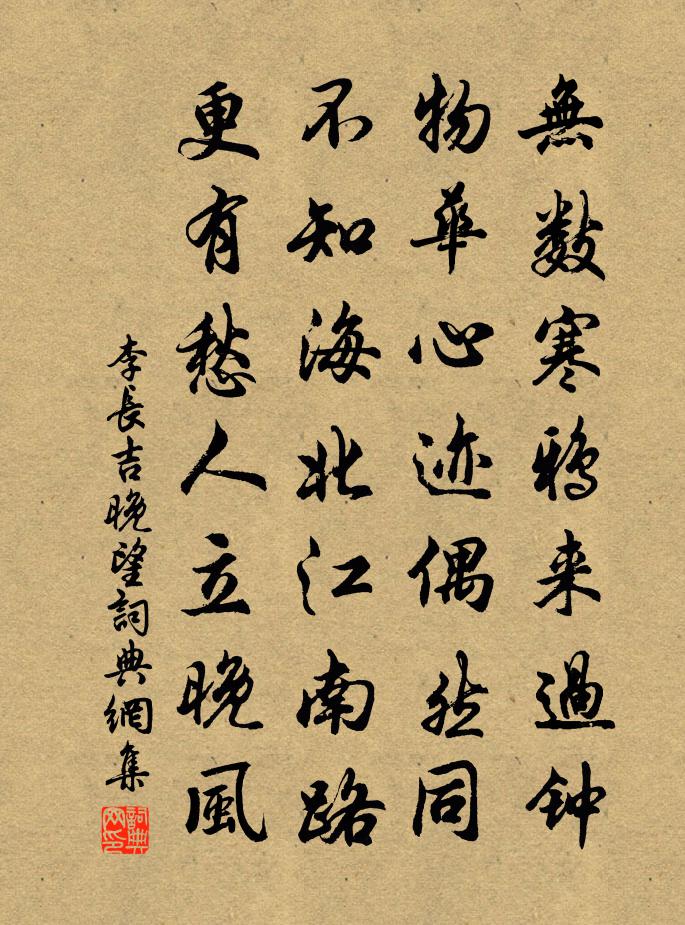 無數寒鴉来過钟
物華心迹偶然同
不知海北江南路
更有愁人立晚風
李長吉晚望詞典網集
詞典網印